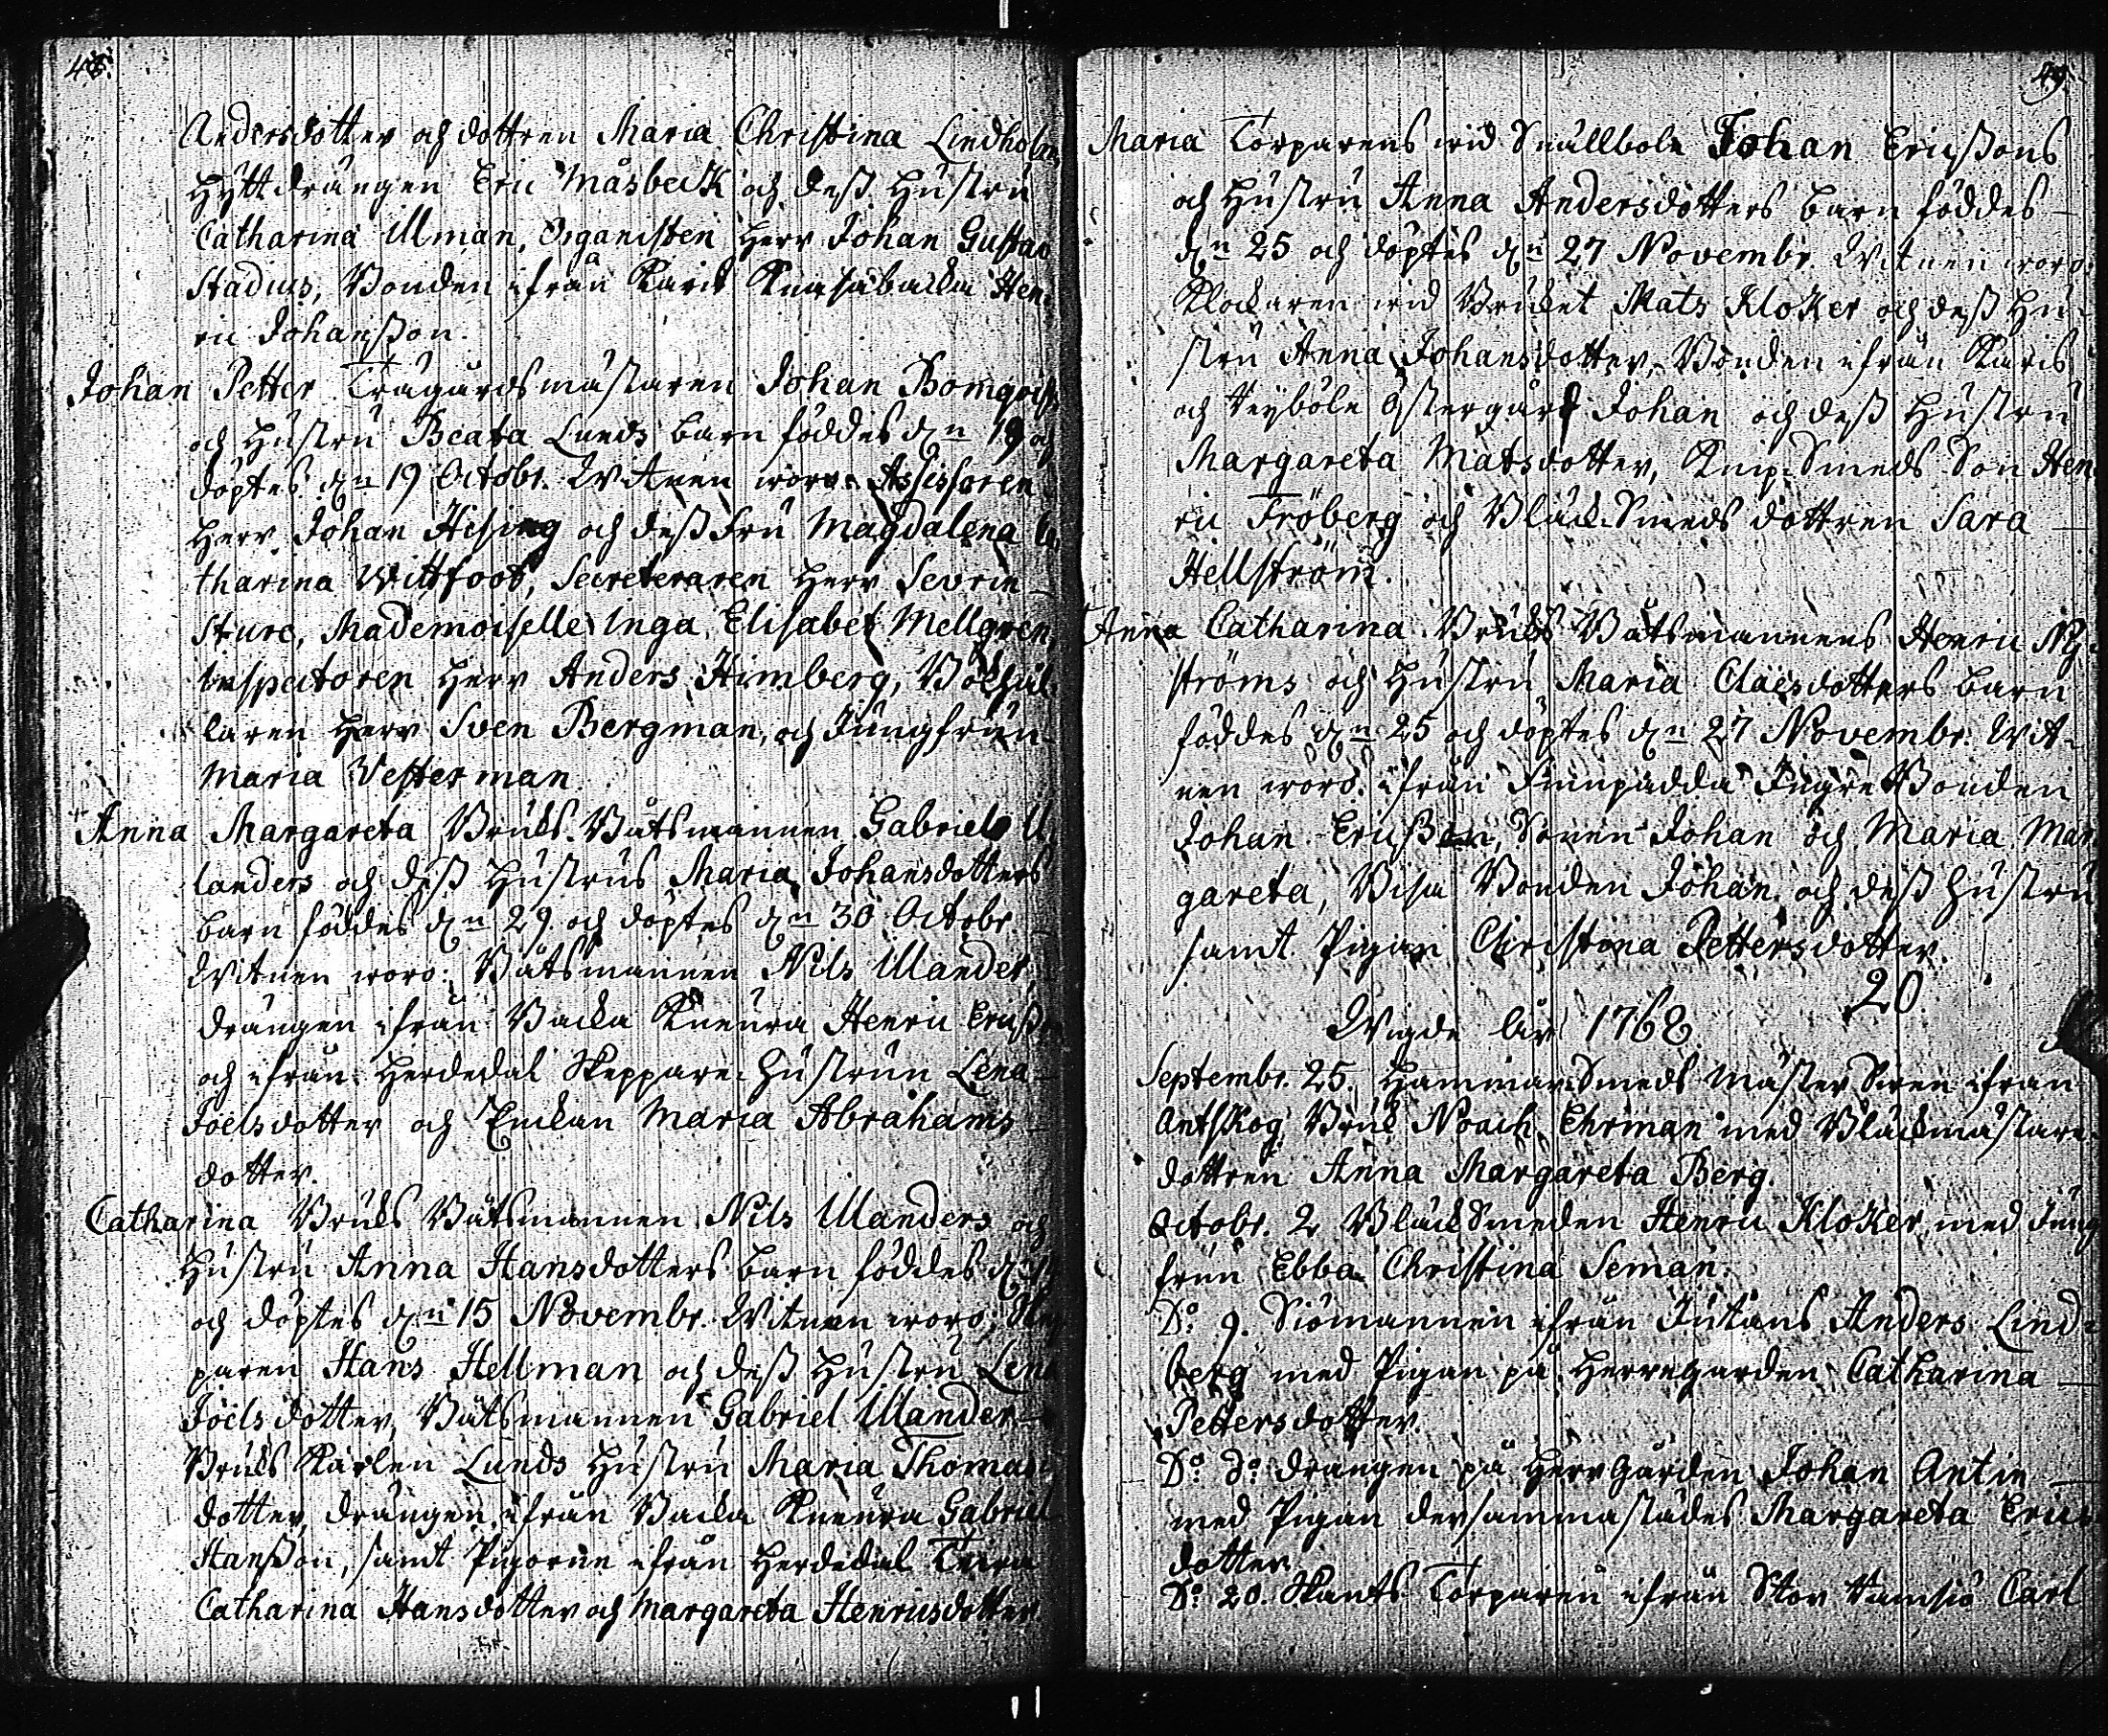 48.
Andersdotter och dottren Maria Christina Lindholm
Hyttdrängen Eric Måsbeck och dess Hustru
Catharina Ulman, Organisten Herr Johan Gustav
Stadius, Bonden ifrån Karis Knasabacka Hen-
ric Johansson.
Johan Petter Trägårdsmästaren Johan Bomqvist
och Hustru Beata Lunds barn föddes dn 19 och
döptes dn 19 Octobr. Witnen woro Assessoren
Herr Johan Hising och dess fru Magdalena Ca
tharina Wittfoot, Secreteraren Herr Sevrin
Sture, Mademoiselle Inga Elisabet Mellgren,
Inspectoren Herr Anders Himberg, Bokhål-
laren Herr Sven Bergman, och Jungfrun
Maria Westerman
Anna Margareta Bruks Båtsmannen Gabriel U
landers och dess Hustrus Maria Johansdotters
barn föddes dn 29. och döptes dn 30 Octobr.
Witnen woro: Båtsmannen Nils Ulander,
drängen ifrån Backa Knenra Henric Ericsson
och ifrån Herdedal Skeppare Hustrun Lena
Joelsdotter och Enckan Maria Abrahams
dotter.
Catharina Bruks Båtsmannen Nils Ulanders och
Hustru Anna Hansdotters barn föddes dn
och döptes dn 15 Novembr. Witnen woro, Skep
paren Hans Hellman och dess Hustru Lena
Joels dotter, Båtsmannen Gabriel Ulander
Bruks Karlen Lunds Hustru Maria Thomas
dotter, drängen ifrån Backa Knenra Gabriel
Hansson, samt Pigorne ifrån Herdedal
Catharina Hansdotter och Margareta Henricsdotter
49.
Maria Torparens wid Snällbole Johan Ericssons
och Hustru Anna Andersdotters barn föddes
dn 25 och döptes dn 27 Novembr. Witnen woro
Klockaren wid Bruket Mats Kloker och dess Hu-
stru Anna Johansdotter, Bonden ifrån Karis
och Heyböle Östergård Johan och dess Hustru
Margareta Matsdotter, Knip-Smeds Son Hen
ric Fröberg och Bläck-Smeds dottren Sara
Hellström.
Anna Catharina Bruks Båtsmannens Henric Ny-
ströms och Hustru Maria Claesdotters barn
föddes dn 25 och döptes dn 27 Novembr. Wit-
nen woro: ifrån Finnpadda Ingre Bonden
Johan Ericsson, Sonen Johan och Maria Mar
gareta, Visa Bonden Johan och dess Hustru
samt Pigan Christina Pettersdotter.
20
Wigde åir 1768
Septembr. 25. Hammar Smeds Mäster Swen ifrån
Antskog Bruk Noach Ehrman med Bläckmästare
dottren Anna Margareta Berg.
Octobr. 2 Bläck Smeden Henric Kloker med Jung
frun Ebba Christina Seman.
Do: 9. Siömannen ifrån Jutans Anders Lind-
berg med Pigan på Herregården Catharina
Pettersdotter.
Do: do: drängen på Herrgården Johan Antin
med Pigan dersammastädes Margareta Erics
dotter
Do: 20. Skants Torparen ifrån Stor Ramsiö Carl